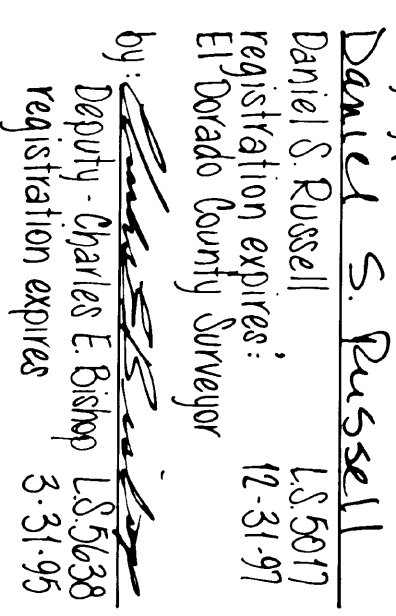 Daniel S. Russell
Daniel S. Russell L.S. 5017
registration expires: 12-31-97
El Dorado County Surveyor
by: Charles E. Bishop
Deputy - Charles E. Bishop L.S. 5638
registration expires 3-31-95